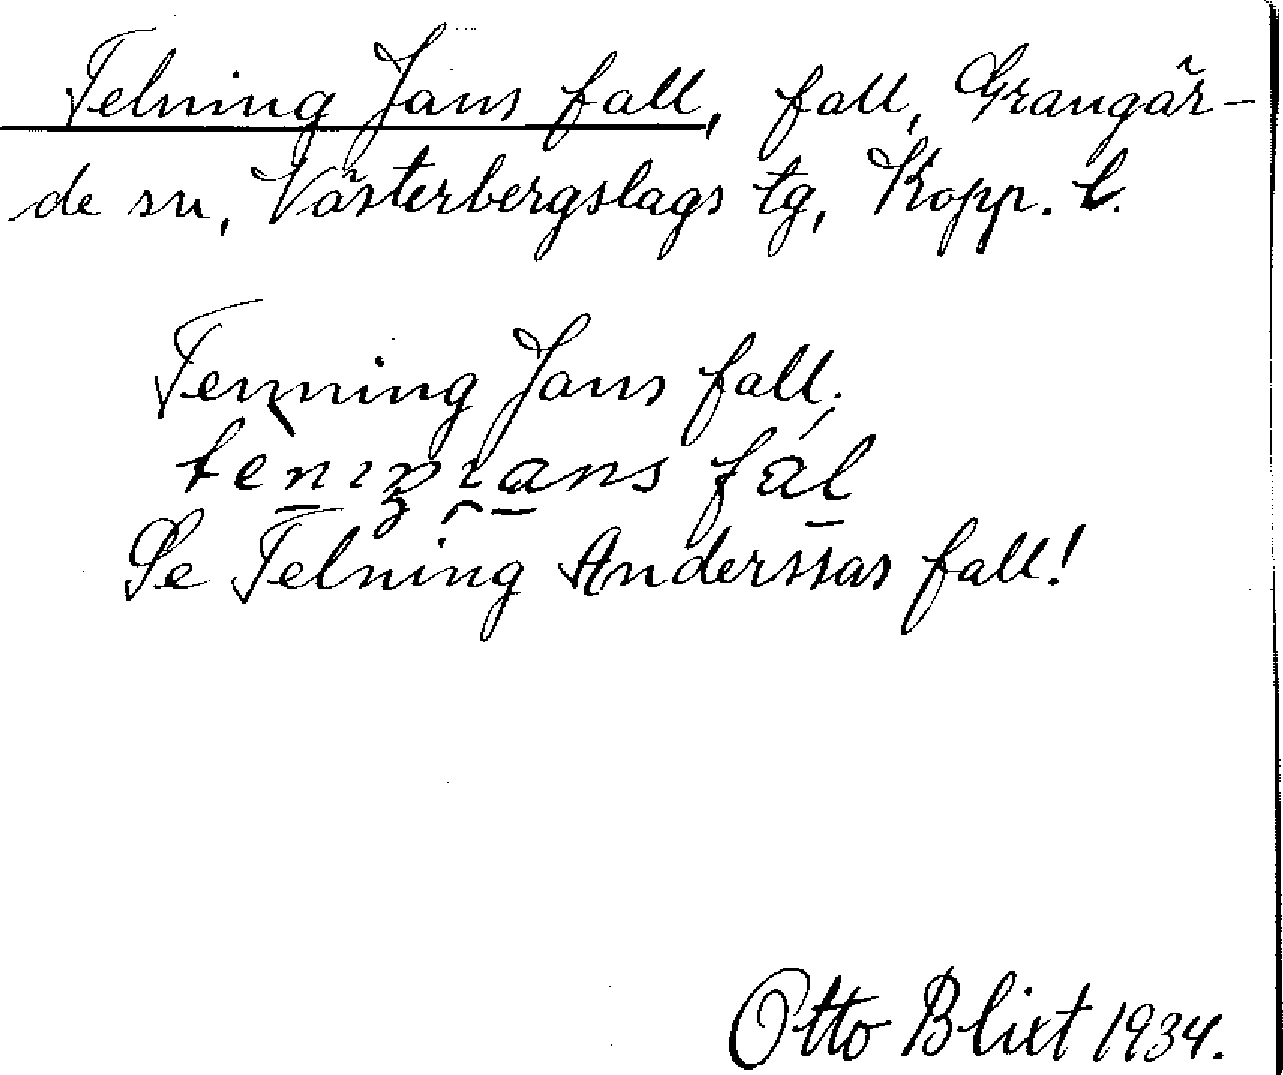 Telning Jans fall, fall, Grangär-
de sn, Västerbergslags tg, Kopp. l.
Tenning Jans fall.
Se Telning Anderssas fall!
Otto Blixt 1934.